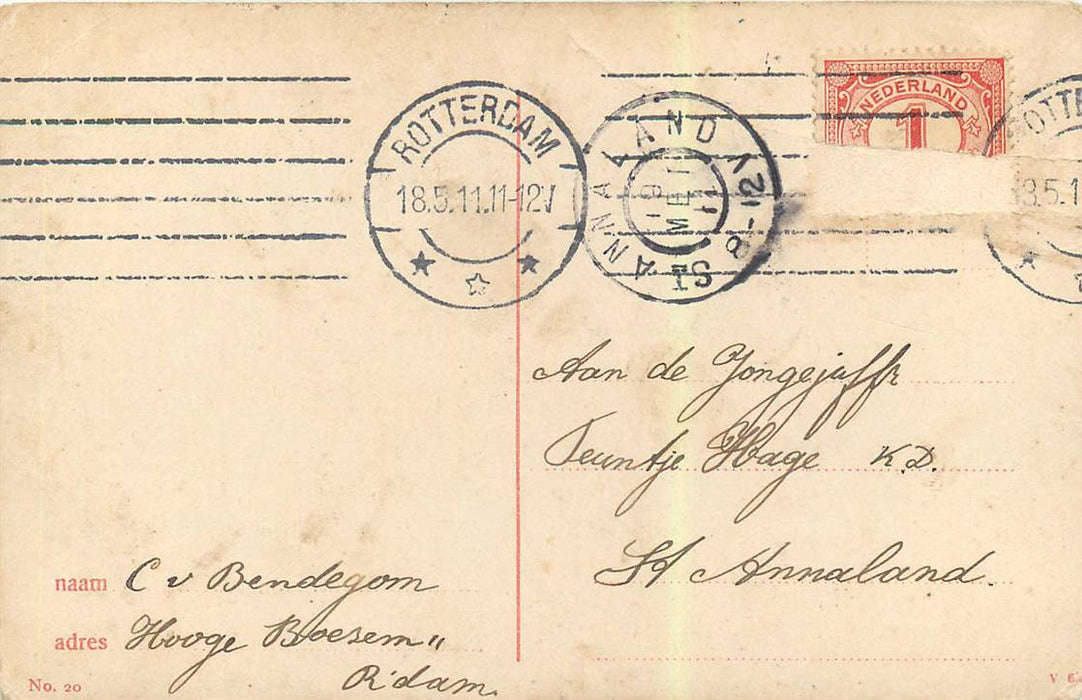 NEDERLAND
1
ROTTERDAM
18.5.11.11-12V
ST ANNALAND
19 MEI 11
8-12V
Aan de Jongejuffr
Teuntje Hage K.D.
St Annaland.
naam C v Bendegom
adres Hooge Boezem "
R'dam.
No. 20
V 6.